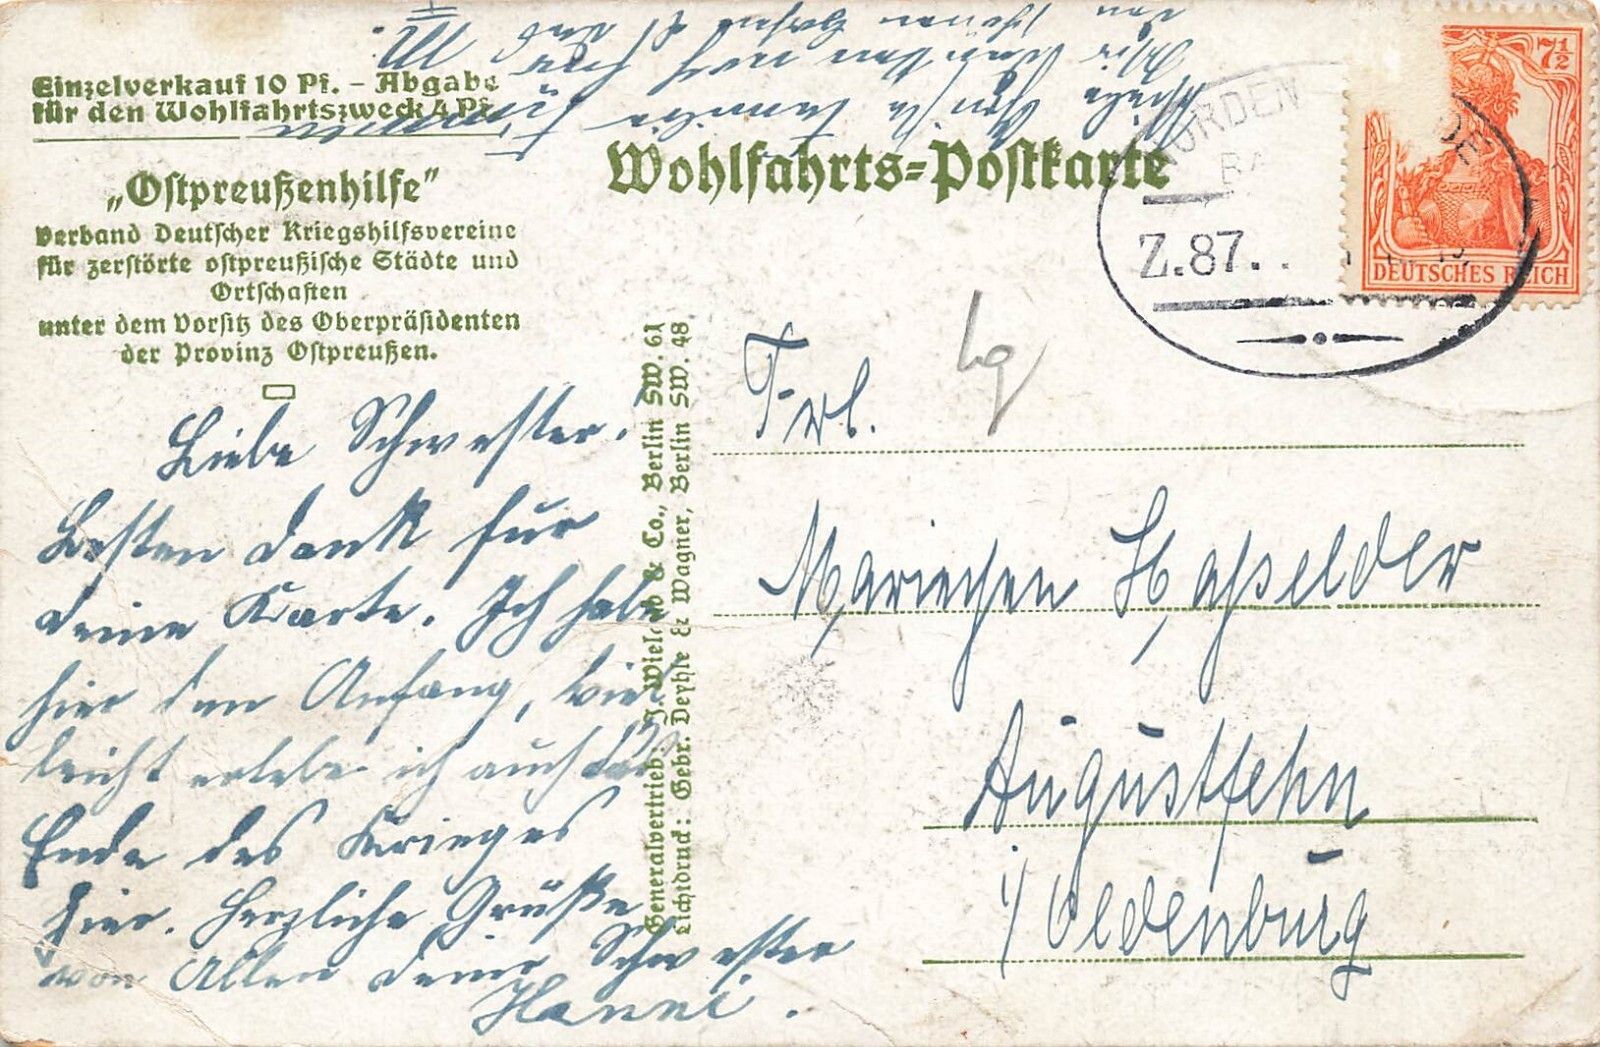 Einzelverkauf 10 Pf. – Abgabe
für den Wohlfahrtszweck 4 Pf.
„Ostpreußenhilfe"
Verband Deutscher Kriegshilfsvereine
für zerstörte ostpreußische Städte und
Ortschaften
unter dem Vorsitz des Oberpräsidenten
der Provinz Ostpreußen.
Wohlfahrts-Postkarte
NORDEN
BA
Z.87.
7½
DEUTSCHES REICH
Liebe Schwester.
Besten Dank für
deine Karte. Ich habe
hier den Anfang, viel
leicht erlebe ich auch das
Ende des Krieges
hier. Herzliche Grüße
von Allen deine Schwester
Hanni.
Generalvertrieb: J. Wiel & Co., Berlin SW. 61
Lichtdruck: Gebr. Deyhle & Wagner, Berlin SW. 48
Frl.
Mariechen Hasselder
Augustfehn
i/Oldenburg